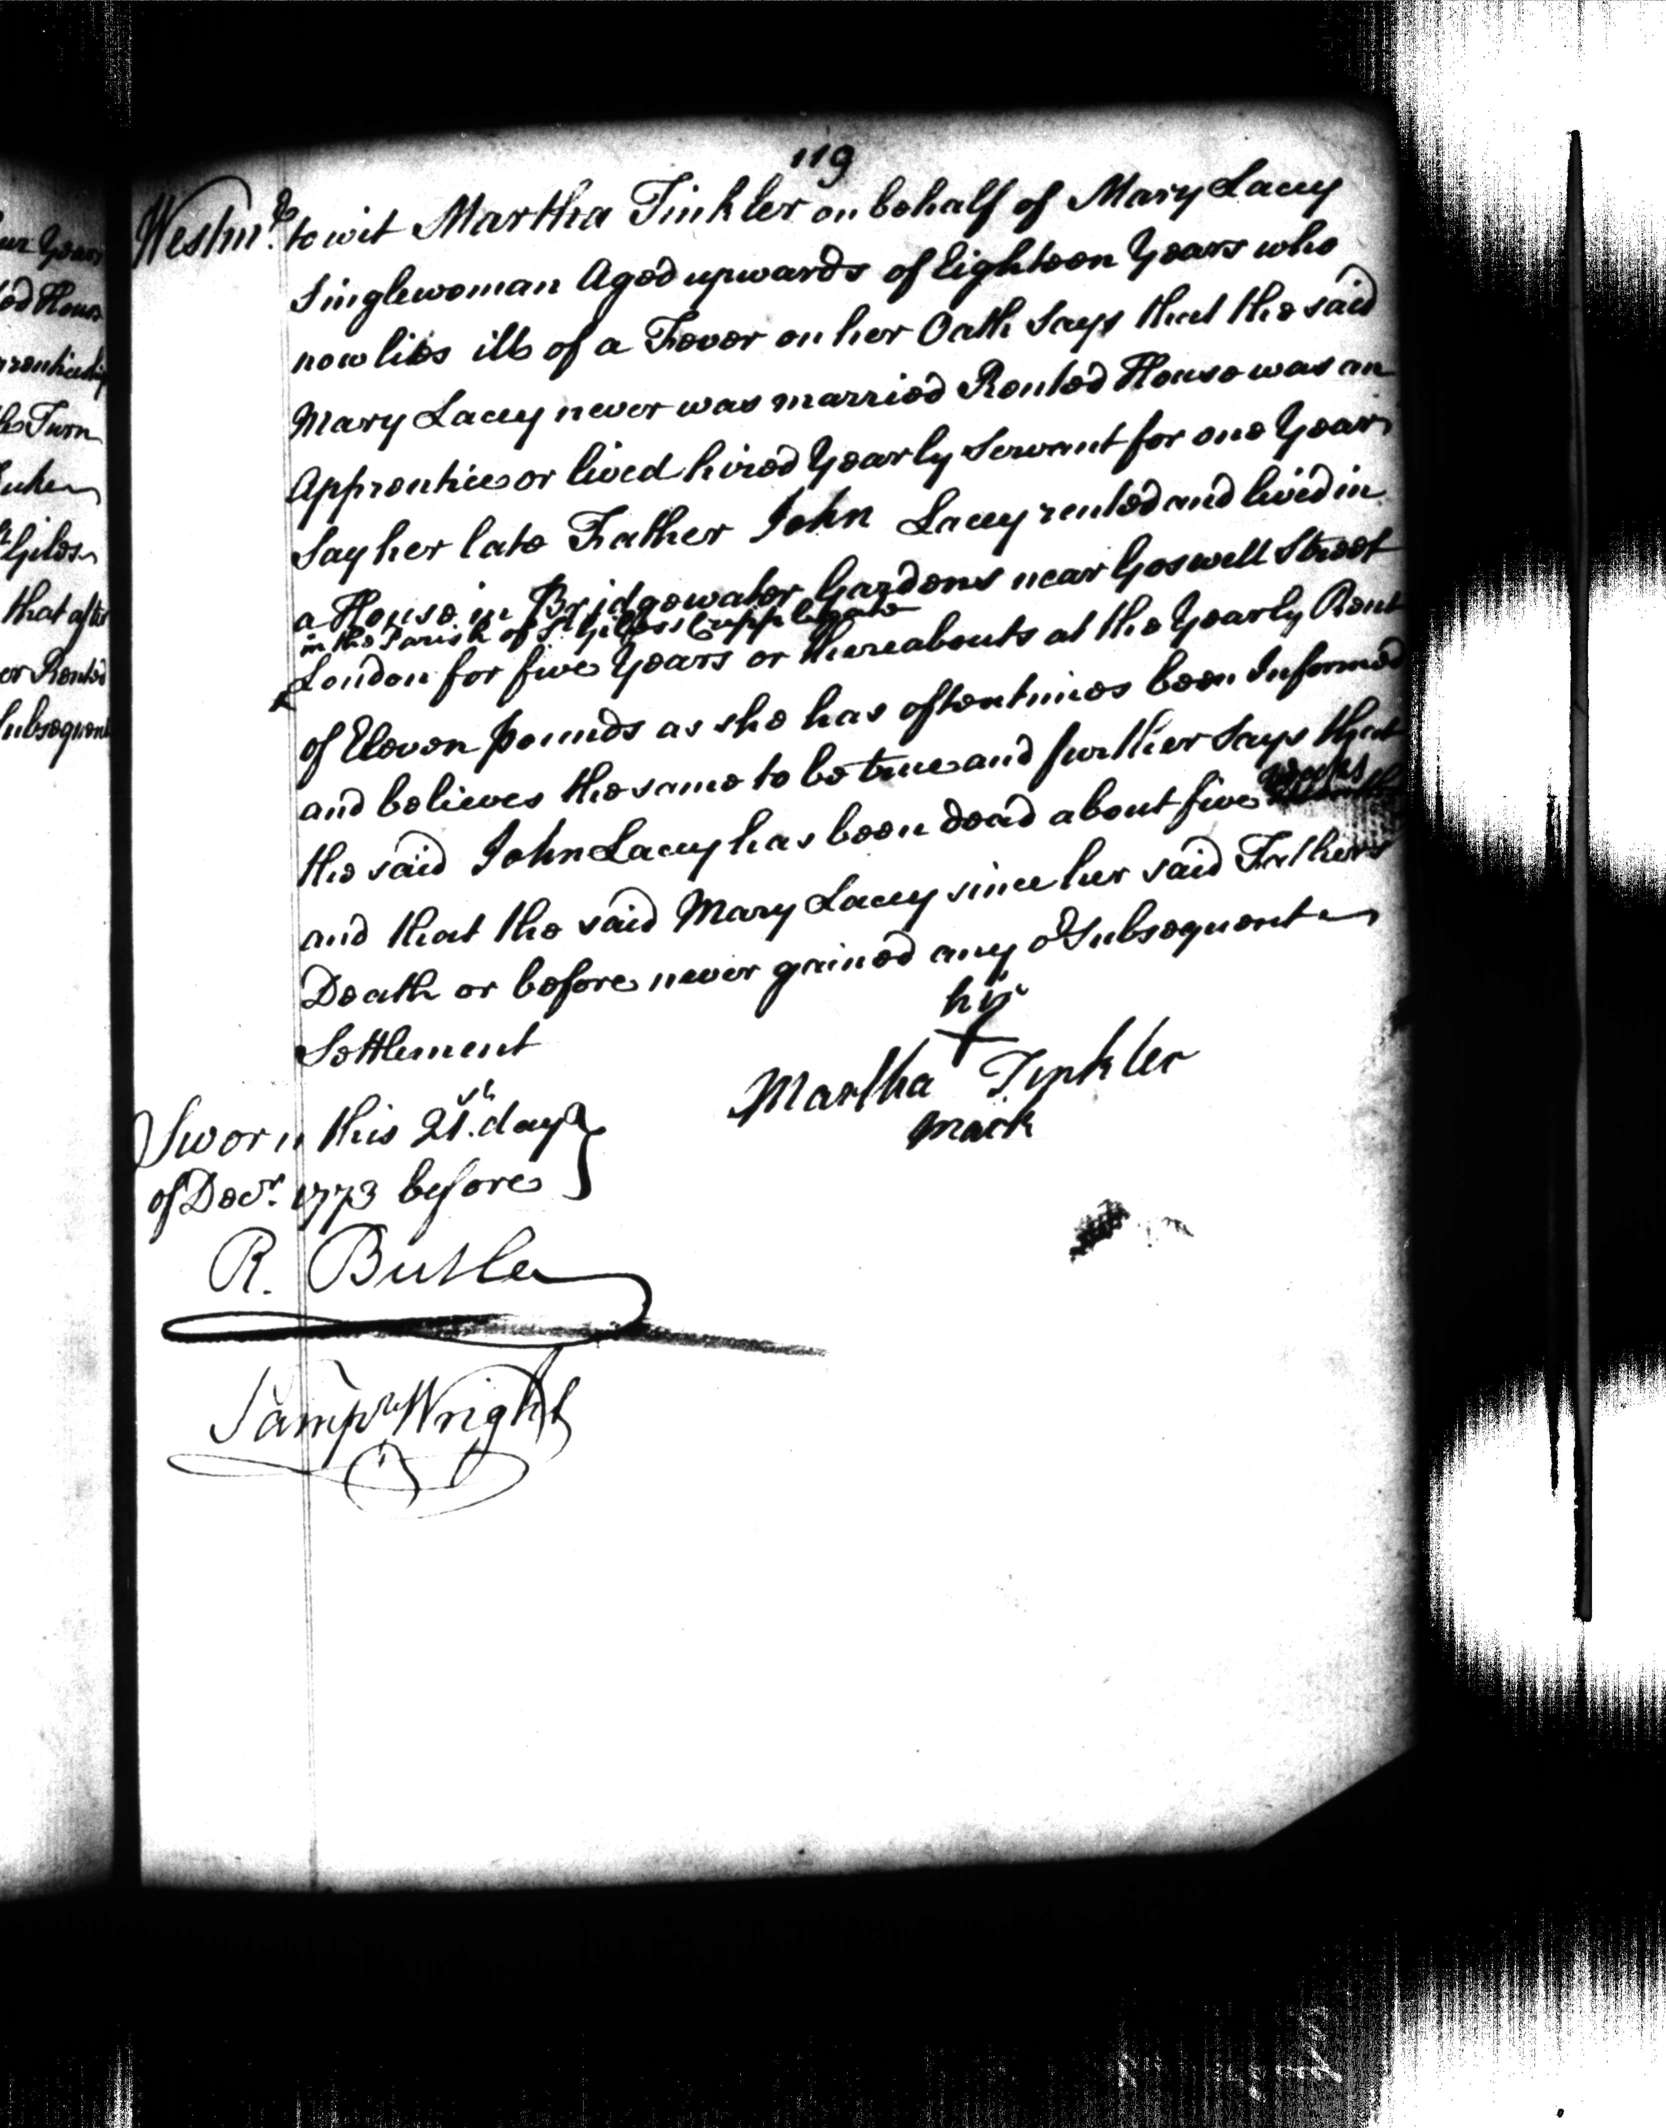 119
Westmr. to wit Martha Tinkler on behalf of Mary Lacey
Singlewoman Aged upwards of Eighteen Years who
now lies ill of a Fever on her Oath Says that the said
Mary Lacey never was married Rented House was an
Apprentice or lived hired Yearly Servant for one Year
Say her late Father John Lacey rented and lived in
a House in Bridgewater Gardens near Goswell Street
in the Parish of St. Giles Cripplegate
London for five Years or thereabouts at the Yearly Rent
of Eleven pounds as she has oftentimes been Informed
and believes the same to be true and further Says that
the said John Lacey has been dead about five Weeks
and that the said Mary Lacey since her said Fathers
Death or before never gained any Subsequent
Settlement
his
Martha Tinkler
mark
Sworn this 21st. day
of Decr. 1773 before
R. Butler
Sampn Wright
ur Years
ed House
prenticeship
Turn
Giles
that after
er Rented
Subsequent